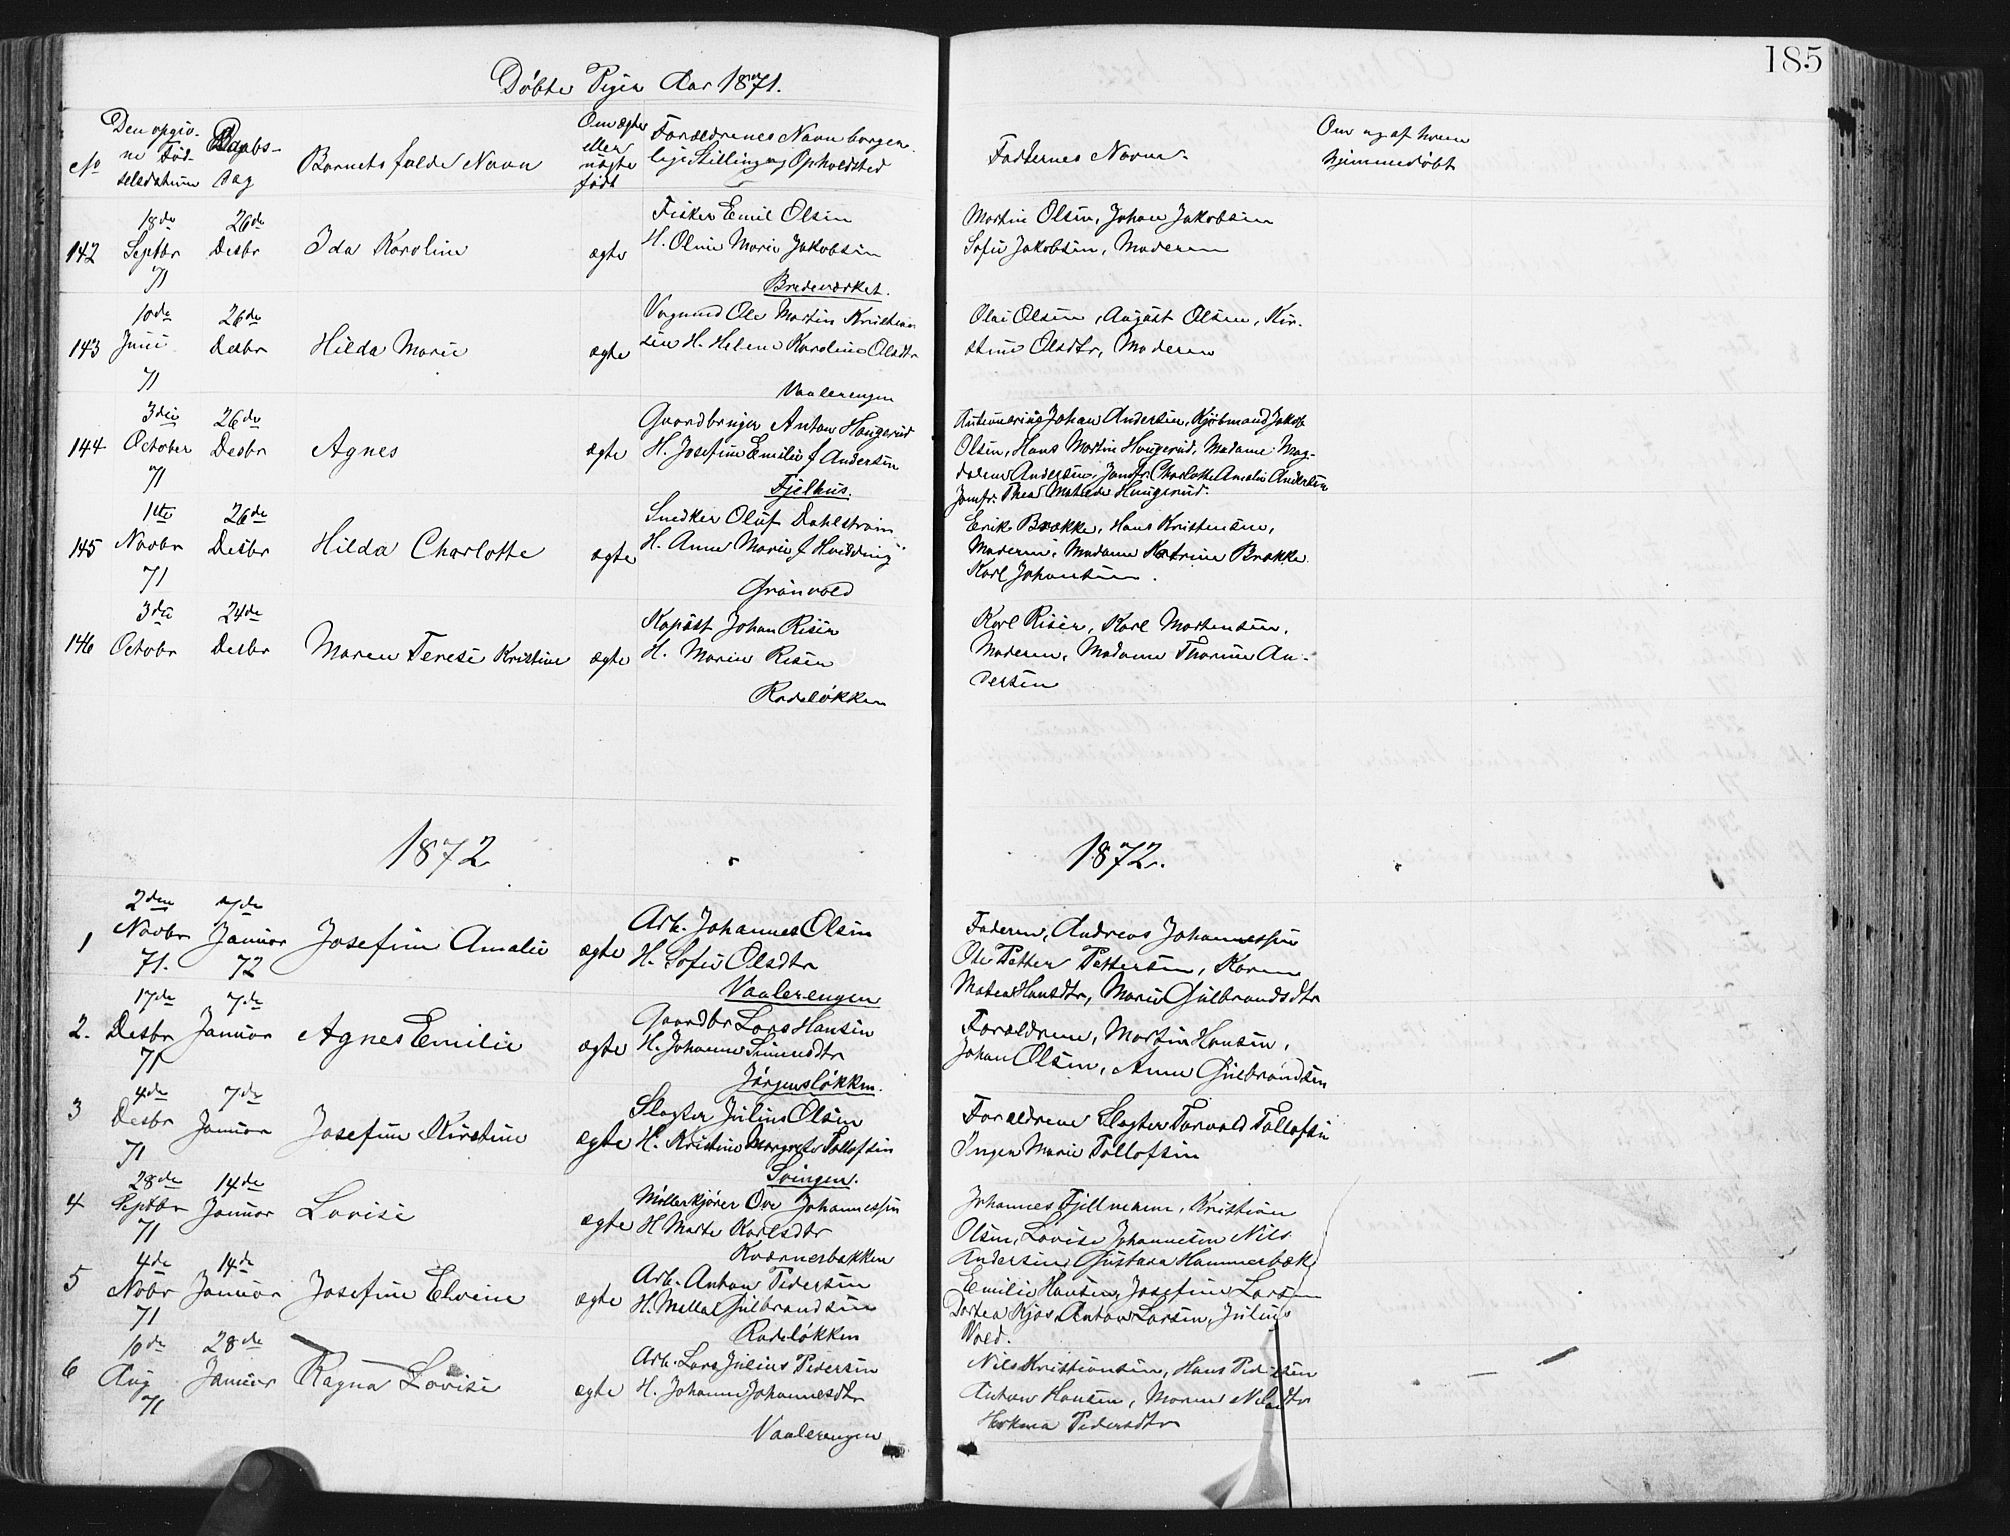 185
Døbte Piger Aar 1871.
No
Den opgiv-
ne Fød-
selsdatum
Daabs-
dag
Barnets fulde Navn
Om ægte
eller
uægte
født
Forældrenes Navn borger-
lige Stilling og Opholdsted
Faddernes Navne.
Om og af hvem
hjemmedøbt
142
18de
Septbr
71
26de
Desbr
Ida Karoline
ægte
Fisker Emil Olsen
H. Oline Marie Jakobsen
Bredeverket.
Martin Olsen, Johan Jakobsen
Sofie Jakobsen, Moderen
143
10de
Juni
71
26de
Desbr
Hilda Marie
ægte
Vognmd Ole Martin Kristian
sen H. Helene Karoline Olsdtr
Vaalerengen
Olai Olsen, August Olsen, Kir-
stine Olsdtr, Moderen
144
3die
October
71
26de
Desbr
Agnes
ægte
Gaardbruger Anton Haugerud
H. Josefine Emilie f Andersen
Fjelhus.
Johan Andersen, Kjøbmand Jakob
Olsen, Hans Martin Haugerud, Madame Mag-
dalene Andersen, Jomfr. Charlotte Amalie Andersen
Jomfr. Thea Matilde Haugerud.
145
11te
Novbr
71
26de
Desbr
Hilda Charlotte
ægte
Snedker Oluf Dahlstrøm
H. Anne Marie f Hvidding
Grønvold
Erik Brække, Hans Kristensen,
Moderen, Madame Katrine Brække
Karl Johansen.
146
3die
October
24de
Desbr
Maren Terese Kristine
ægte
Kopist Johan Risen
H. Marie Risen
Rodeløkken
Karl Risen, Karl Mortensen,
Moderen, Madame Thorine An-
dersen
1872
1872.
1
2den
Novbr
71.
7de
Januar
72
Josefine Amalie
ægte
Arb. Johannes Olsen
H. Sofie Olsdtr
Vaalerengen
Faderen, Andreas Johannessen
Ole Petter Pettersen, Karen
Matea Hansdtr, Marie Gulbrandsdtr
2.
17de
Desbr
71
7de
Januar
Agnes Emilie
ægte
Gaardbr Lars Hansen
H. Johanne Simensdtr
Jørgensløkken.
Forældrene, Martin Hansen,
Johan Olsen, Anne Gulbrandsen
3
4de
Desbr
71
7de
Januar
Josefine Kirstine
ægte
Slagter Julius Olsen
H. Kristine Margrete Tollofsen
Svingen.
Forældrene Slagter Torvald Tollofsen
Ingen Marie Tollofsen
4
28de
Septbr
71
14de
Januar
Lovise
ægte
Møllerkjører Ove Johannessen
H Marte Karlsdtr
Kværnerbakken
Johannes Fjellmann, Kristian
Olsen, Lovise Johannesen Nils
Andersen Gustava Hammerbæk
5
4de
Novbr
71
14de
Januar
Josefine Elvine
ægte
Arb. Anton Pedersen
H. Mella Gulbrandsen
Rodeløkken
Emilie Hansen, Josefine Larsen
Dortea Kjos Anton Larsen, Julius
Vold.
6
10de
Aug
71
28de
Januar
Ragna Lovise
ægte
Arb. Lars Julius Pedersen
H. Johanne Johannesdtr
Vaalerengen
Nils Kristiansen, Hans Pedersen
Anton Hansen, Maren Nilsdtr
Pedersdtr